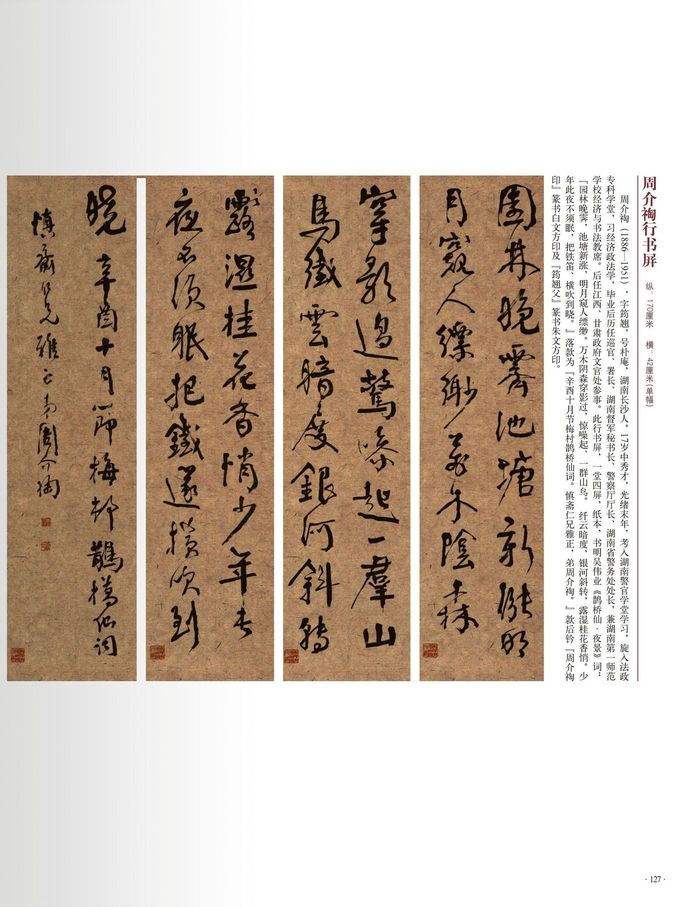 周介裪行书屏 纵：179厘米 横：42厘米(单幅)
周介裪（1886—1951），字筠翘，号朴庵，湖南长沙人。17岁中秀才，光绪末年，考入湖南警官学堂学习，旋入法政
专科学堂，习经济政法学，毕业后历任巡官、署长、湖南督军秘书长、警察厅厅长、湖南省警务处处长，兼湖南第一师范
学校经济与书法教席。后任江西、甘肃政府文官处参事。此行书屏，一堂四屏，纸本，书明吴伟业《鹊桥仙·夜景》词：
『园林晚霁，池塘新涨，明月窥人缥缈。万木阴森穿影过，惊噪起、一群山鸟。 纤云暗度，银河斜转，露湿桂花香悄。少
年此夜不须眠，把铁笛、横吹到晓。』落款为『辛酉十月节梅村鹊桥仙词。慎斋仁兄雅正，弟周介裪。』款后钤『周介裪
印』篆书白文方印及『筠翘父』篆书朱文方印。
園林晚霽池塘新漲明
月窺人縹緲萬木陰森
穿影過驚噪起一羣山
鳥纖雲暗度銀河斜轉
露濕桂花香悄少年此
夜不須眠把鐵篴橫吹到
曉 辛酉十月節梅邨鵲橋仙詞
慎齋仁兄雅正弟周介裪
·127·